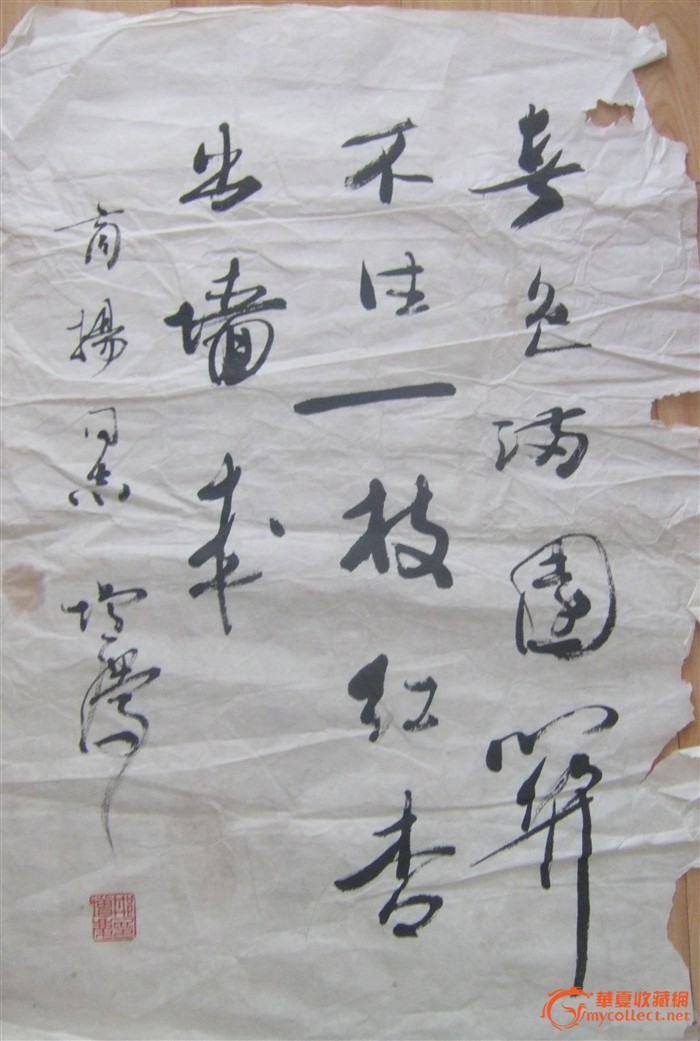 春色满園關
不住一枝红杏
出墙来
商揚
華夏收藏網
mycollect.net